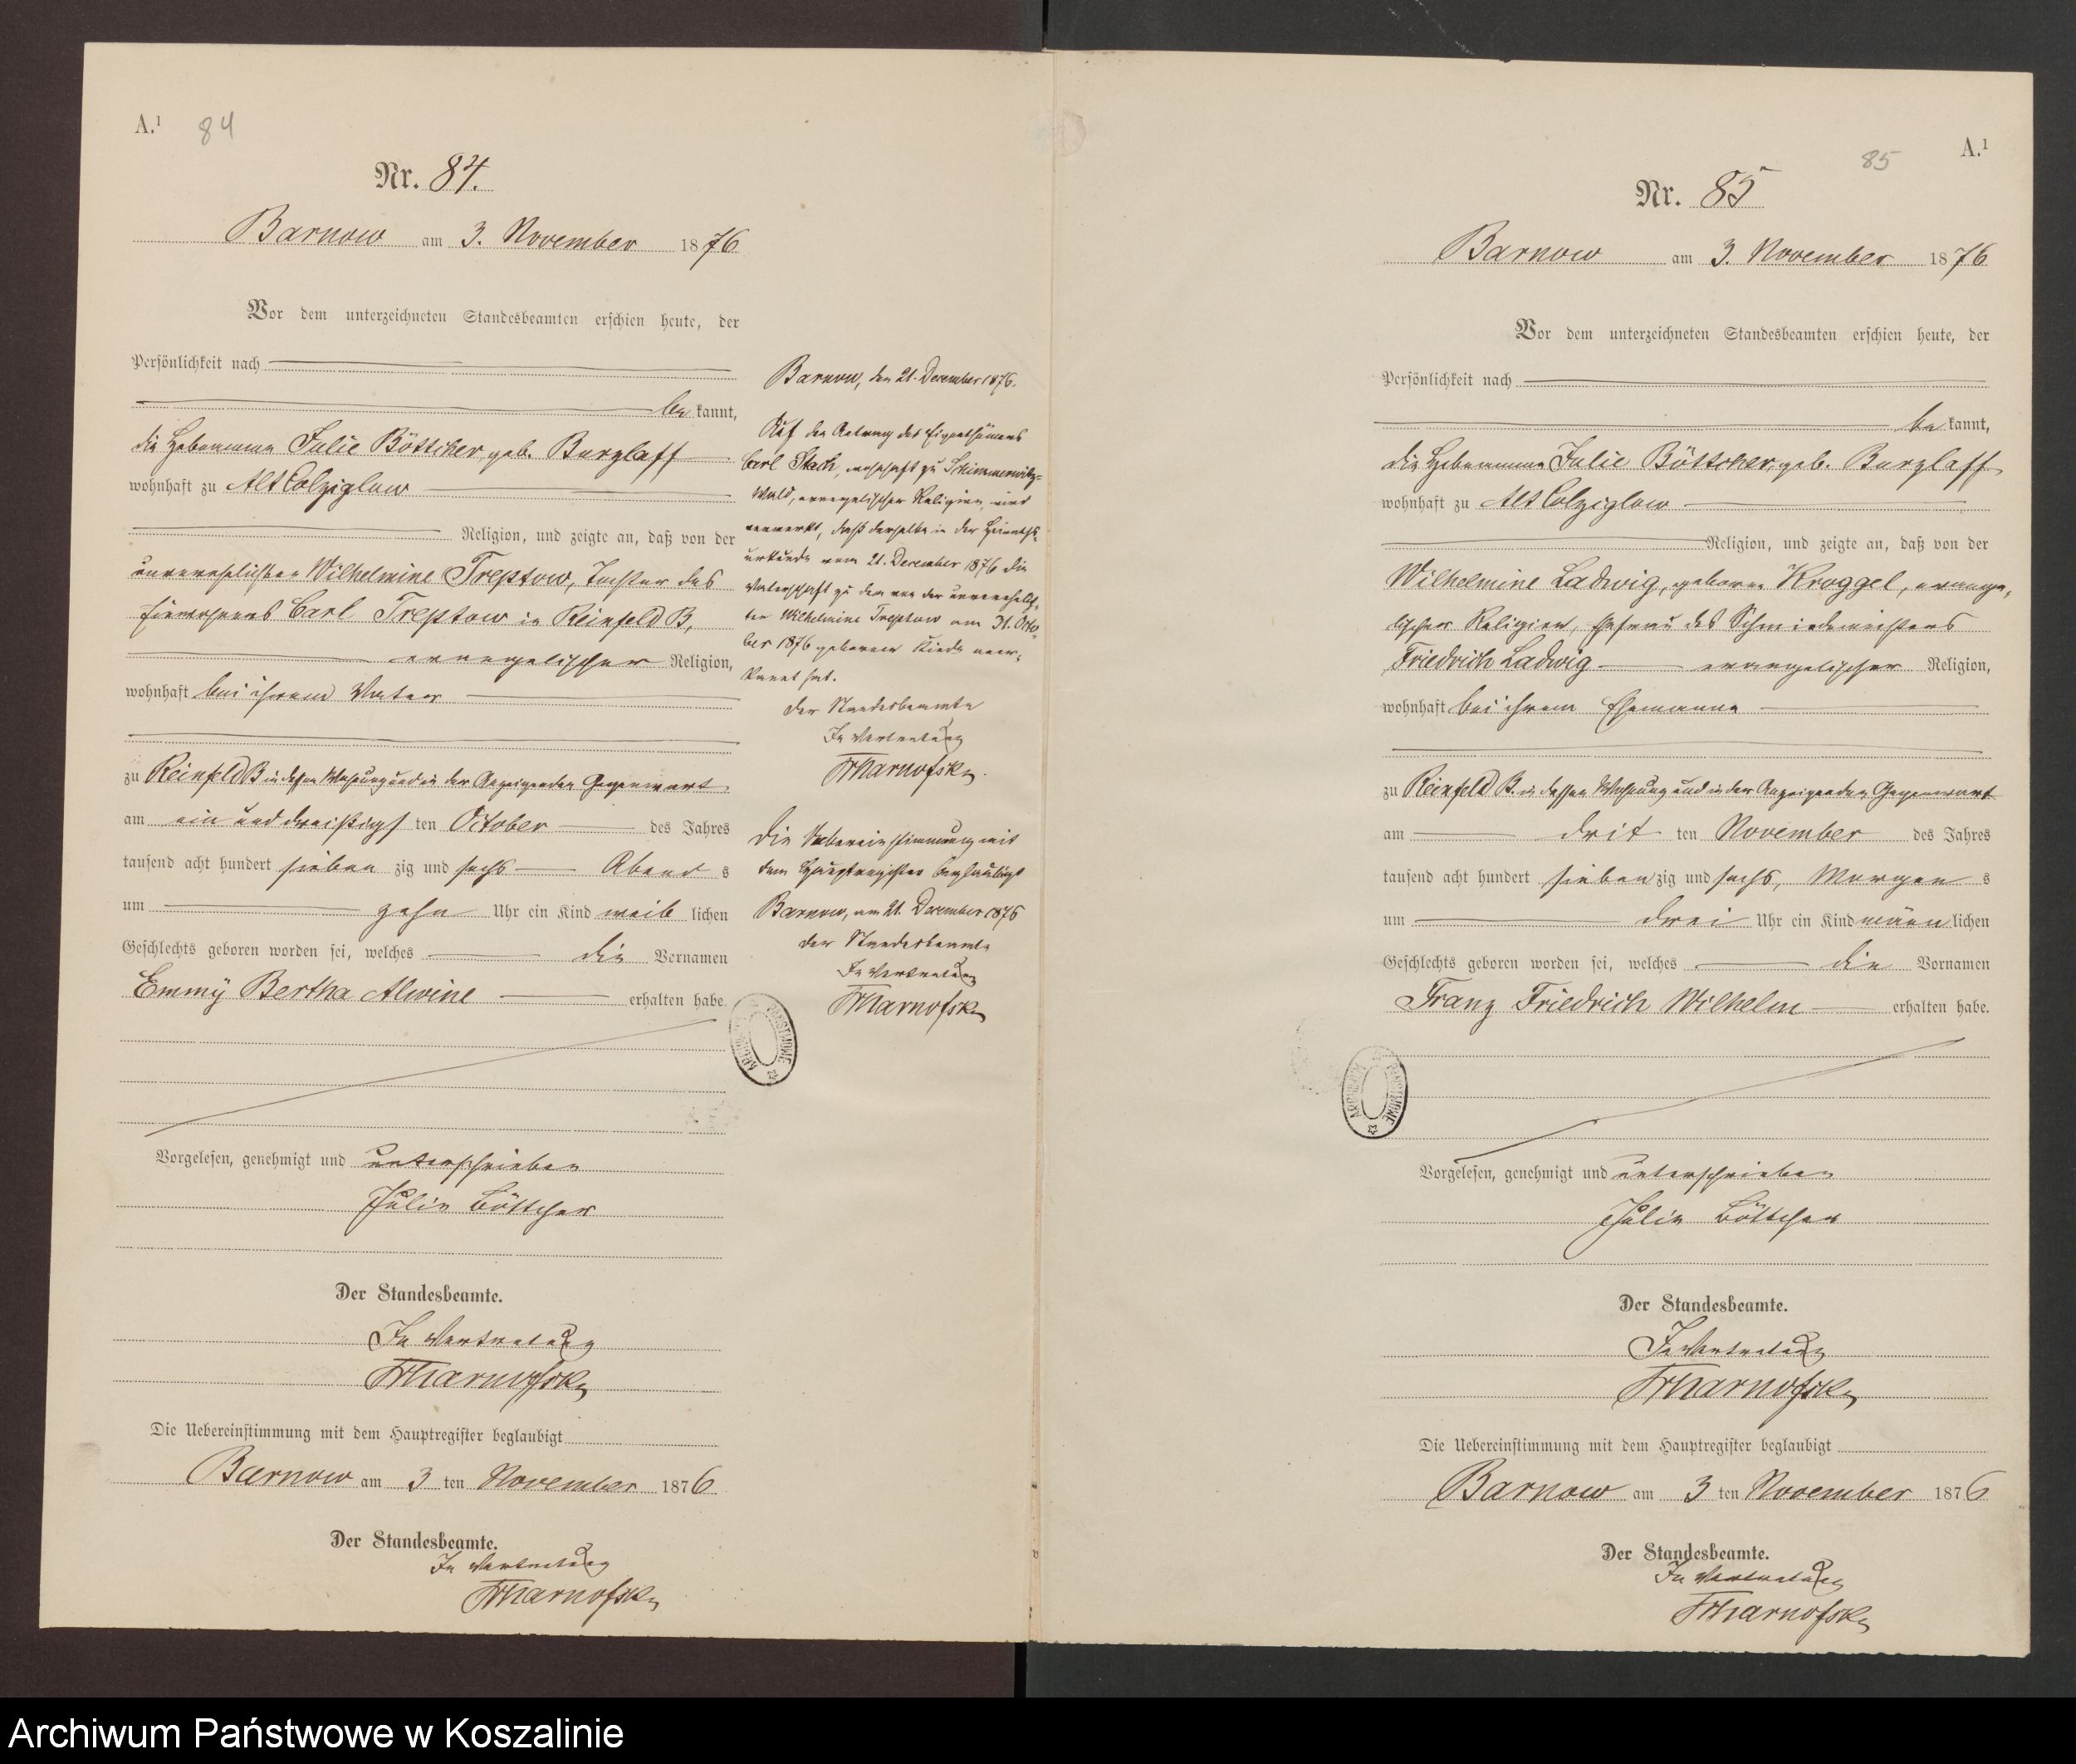 A.¹ 84
Nr. 84.
Barnow am 3. November 1876
Vor dem unterzeichneten Standesbeamten erschien heute, der
Persönlichkeit nach
be kannt,
die Hebamme Julie Böttcher, geb. Burzlaff
wohnhaft zu Alt Colziglow
Religion, und zeigte an, daß von der
unverehelichten Wilhelmine Treptow, Tochter des
Einwohners Carl Treptow in Reinfeld B,
evangelischer Religion,
wohnhaft bei ihrem Vater
zu Reinfeld B in dessen Wohnung und in der Anzeigenden Gegenwart
am ein und dreißigs ten October des Jahres
tausend acht hundert sieben zig und sechs Abend s
um zehn Uhr ein Kind weib lichen
Geschlechts geboren worden sei, welches die Vornamen
Emmy Bertha Alwine erhalten habe.
Vorgelesen, genehmigt und unterschrieben
Julie Böttcher
Der Standesbeamte.
In Vertretung
Die Uebereinstimmung mit dem Hauptregister beglaubigt
Barnow am 3 ten November 1876
Der Standesbeamte.
In Vertretung
Barnow, den 21. December 1876.
Auf den Antrag des Eigenthümers
Carl Stach, wohnhaft zu Schimmerwitz-
Wald, evangelischer Religion, wird
vermerkt, daß derselbe in der Heiraths
urkunde vom 21. December 1876 die
Vaterschaft zu dem von der unverehelich-
ten Wilhelmine Treptow am 31. Octo-
ber 1876 geborenen Kinde aner-
kannt hat.
Der Standesbeamte
In Vertretung
Die Uebereinstimmung mit
dem Hauptregister beglaubigt
Barnow, am 21. December 1876
Der Standesbeamte
In Vertretung
ARCHIWUM PAŃSTWOWE
85 A.¹
Nr. 85
Barnow am 3. November 1876
Vor dem unterzeichneten Standesbeamten erschien heute, der
Persönlichkeit nach
be kannt,
die Hebamme Julie Böttcher, geb. Burzlaff
wohnhaft zu Alt Colziglow
Religion, und zeigte an, daß von der
Wilhelmine Ladwig, geborne Kroggel, evange-
lischer Religion, Ehefrau des Schmiedemeisters
Friedrich Ladwig evangelischer Religion,
wohnhaft bei ihrem Ehemanne
zu Reinfeld B. in dessen Wohnung und in der Anzeigenden Gegenwart
am drit ten November des Jahres
tausend acht hundert sieben zig und sechs, Morgen s
um drei Uhr ein Kind männ lichen
Geschlechts geboren worden sei, welches die Vornamen
Franz Friedrich Wilhelm erhalten habe.
ARCHIWUM PAŃSTWOWE
Vorgelesen, genehmigt und unterschrieben
Julie Böttcher
Der Standesbeamte.
In Vertretung
Die Uebereinstimmung mit dem Hauptregister beglaubigt
Barnow am 3 ten November 1876
Der Standesbeamte.
In Vertretung
Archiwum Państwowe w Koszalinie